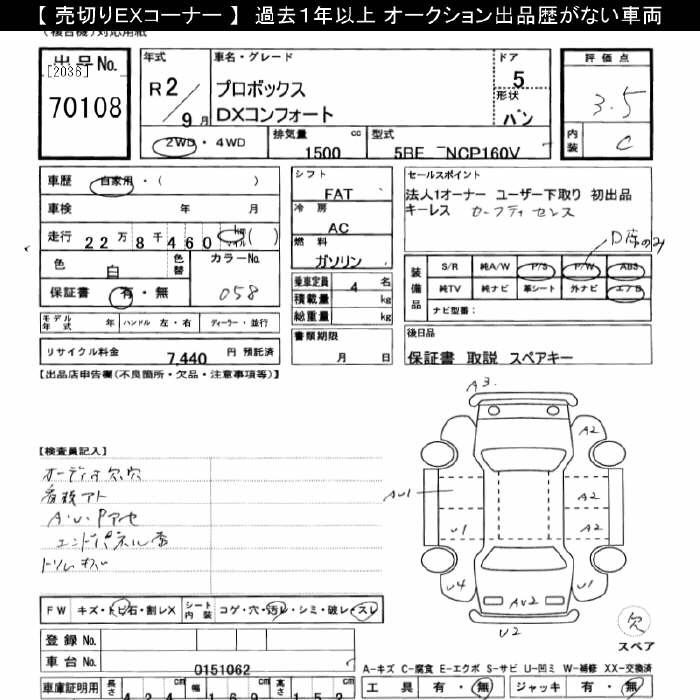 【 売切りEXコーナー 】 過去1年以上 オークション出品歴がない車両
(複合機)対応用紙
出品No.
[2036]
70108
年式
R2/9月
車名・グレード
プロボックス
DXコンフォート
ドア
5
形状
バン
2WD・4WD
排気量 cc
1500
型式
5BE NCP160V
評価点
3.5
内装
C
車歴 自家用・( )
車検 年 月
走行 22万8千460 km マイル ( )
色 白 色替 カラーNo. 058
保証書 有・無
モデル年式 年 ハンドル 左・右 ディーラー・並行
リサイクル料金 7,440 円 預託済
シフト
FAT
冷房
AC
燃料
ガソリン
乗車定員 4 名
積載量 kg
総重量 kg
書類期限
月 日
セールスポイント
法人1オーナー ユーザー下取り 初出品
キーレス セーフティセンス
D席のみ
装備品
S/R 純A/W P/S P/W ABS
純TV 純ナビ 革シート 外ナビ エアB
ナビ型番:
後日品
保証書 取説 スペアキー
【出品店申告欄(不良箇所・欠品・注意事項等)】
【検査員記入】
オーディオ欠、穴
看板アト
A・U・Pアセ
エンドパネル歪
トリムキズ
A3
A2
AU1
A2
U1
A2
U4
U1
AU2
U2
欠
スペア
FW キズ・トビ石・割レX シート内装 コゲ・穴・汚レ・シミ・破レ・スレ
登録No.
車台No. 0151062
A-キズ C-腐食 E-エクボ S-サビ U-凹ミ W-補修 XX-交換済
車庫証明用 長さ 424 cm 幅 169 cm 高さ 152 cm
工具 有・無 ジャッキ 有・無